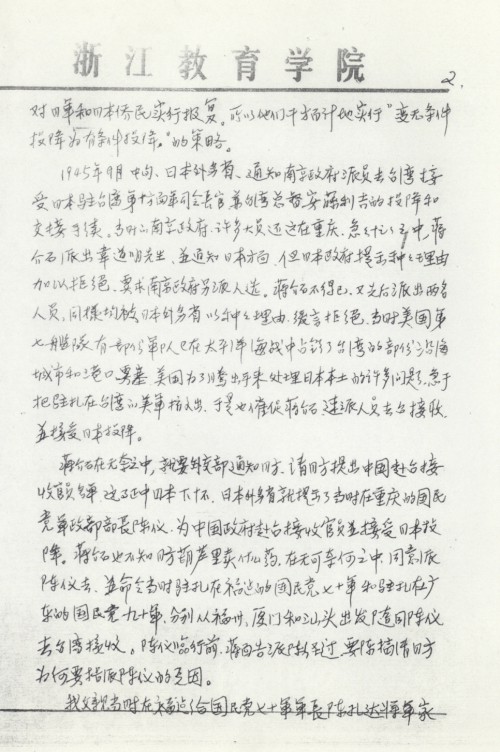 浙江教育学院
2.
对日军和日本侨民实行报复。所以他们千方百计地实行"变无条件
投降为有条件投降。"的策略。
1945年9月中旬、日本外务省、通知南京政府派员去台湾接
受日本驻台湾第十方面军司令长官兼台湾总督安藤利吉的投降和
交接手续。当时的南京政府、许多大员还在重庆、急忙之中,蒋
介石派出韦道明先生、并通知日本方面、但日本政府提出种之理由
加以拒绝、要求南京政府另派人选。蒋介石不得已、又先后派出两名
人员,同样均被日本外务省以种之理由、婉言拒绝、当时美国第
七舰队有一部份军队已在太平洋海战中占领了台湾的部份沿海
城市和港口要塞 美国为了腾出手来处理日本本土的许多问题、急于
把驻扎在台湾的美军撤出、于是也催促蒋介石速派人员去台接收、
并接受日本投降。
蒋介石在无奈之中,就要外交部通知日方、请日方提出中国赴台接
收官员名单 这正中日本下怀、日本外务省就提出了当时在重庆的国民
党军政部部长陈仪、为中国政府赴台接收官员并接受日本投
降。蒋介石也不知日方葫芦里卖什么药,在无可奈何之中,同意派
陈仪去、并命令当时驻扎在福建的国民党七十军和驻扎在广
东的国民党九十军,分别从福州,厦门和汕头出发随同陈仪
去台湾接收。陈仪临行前,蒋 告 陈 要陈搞清日方
为何要指派陈仪的原因。
我父亲当时在福建给国民党七十军军长陈孔达将军家